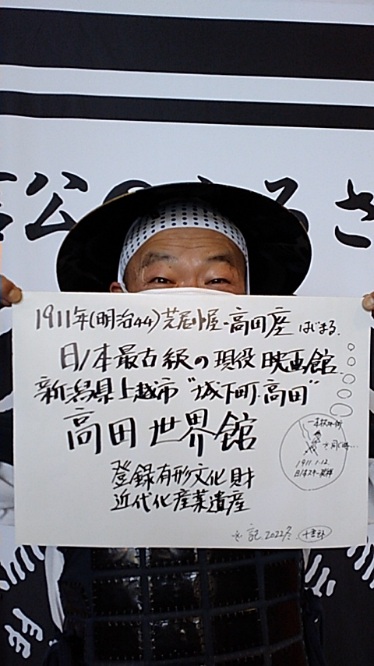 公のふるさ
1911年(明治44)芝居小屋・高田座はじまる.
日本最古級の現役映画館
新潟県上越市"城下町.高田"
高田世界館
登録有形文化財
近代化産業遺産
1911.1.12
記 2022.